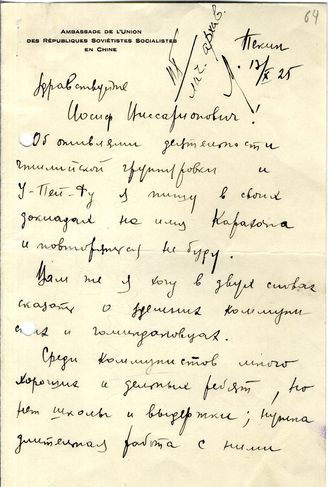 64
AMBASSADE DE L'UNION
DES RÉPUBLIQUES SOVIÉTISTES SOCIALISTES
EN CHINE
Пекин
13/X 25
лич. архив.
Здравствуйте
Иосиф Виссарионович!
Об оживлении деятельности
чжилийской группировки и
У-Пей-Фу я пишу в своих
докладах на имя Карахана
и повторяться не буду.
Вам же я хочу в двух словах
сказать о здешних коммуни
стах и гоминдановцах.
Среди коммунистов много
хороших и дельных ребят, но
нет школы и выдержки; нужна
длительная работа с ними